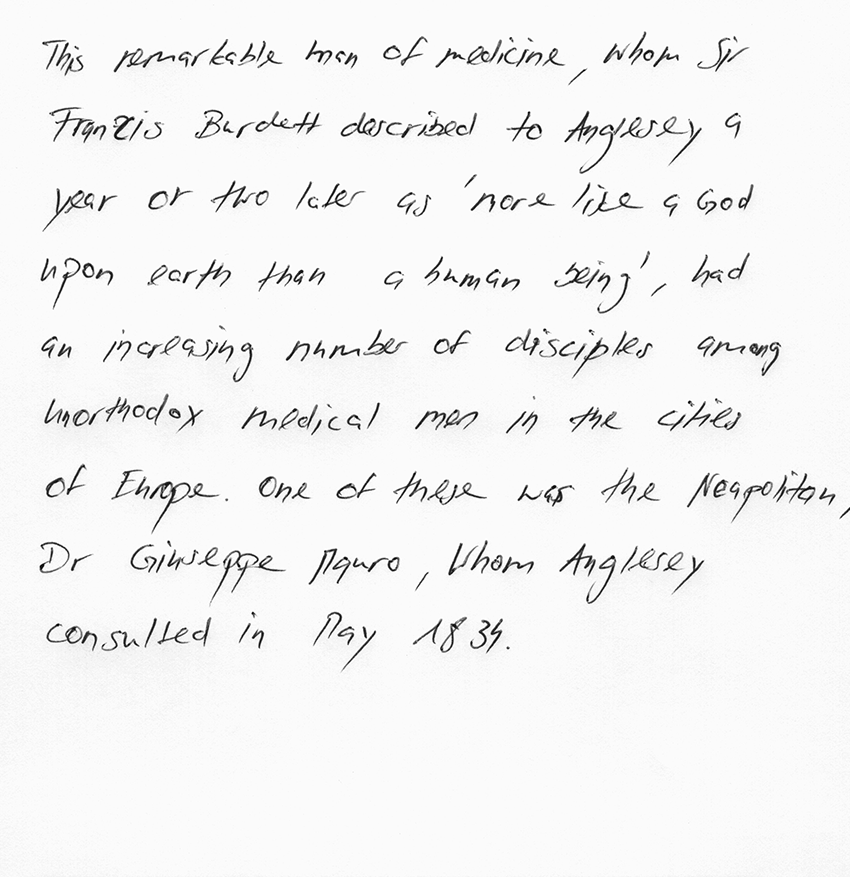 This remarkable man of medicine, whom Sir
Franzis Burdett described to Anglesey a
year or two later as 'more like a God
upon earth than a human being', had
an increasing number of disciples among
unorthodox medical men in the cities
of Europe. One of these was the Neapolitan,
Dr Giuseppe Mauro, whom Anglesey
consulted in May 1834.